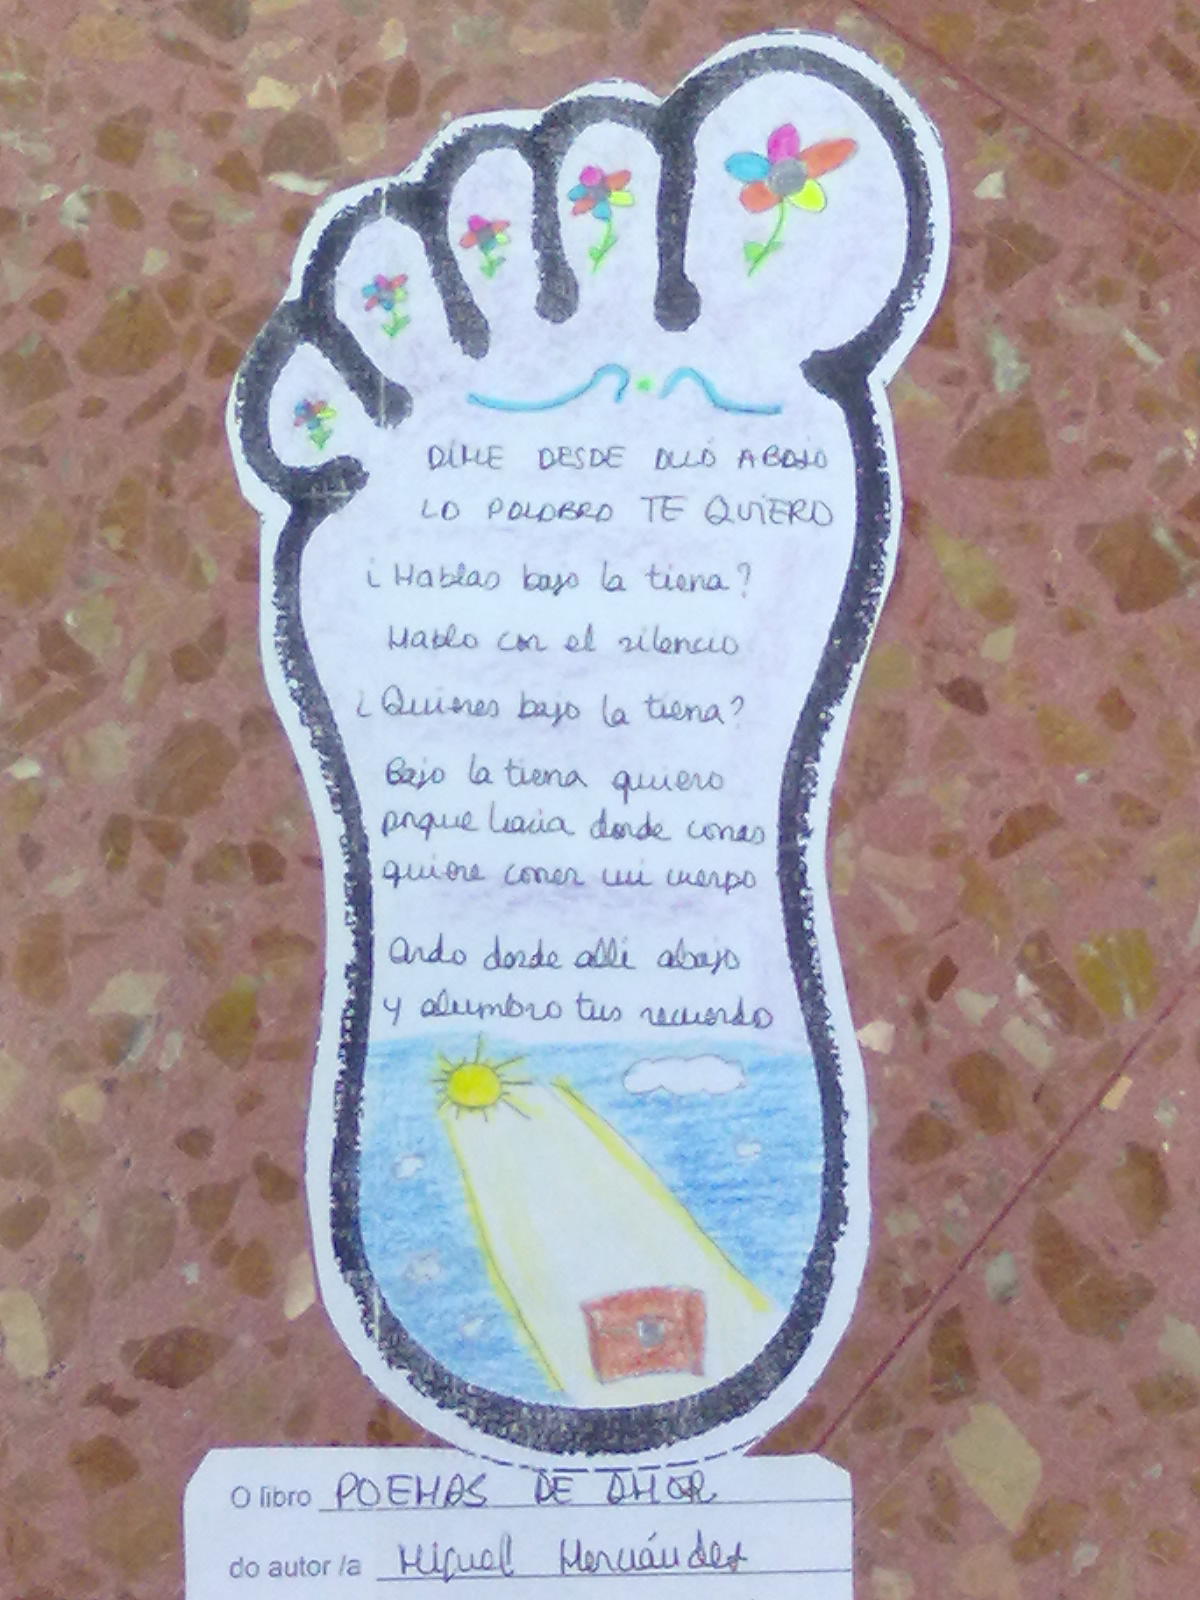 DIME DESDE ALLÁ ABAJO
LA PALABRA TE QUIERO
¿Hablas bajo la tierra?
Hablo con el silencio
¿Quieres bajo la tierra?
Bajo la tierra quiero
porque hacia donde corras
quiere correr mi cuerpo
Ardo desde allí abajo
y alumbro tus recuerdo
O libro POEMAS DE AMOR
do autor /a Miguel Hernández